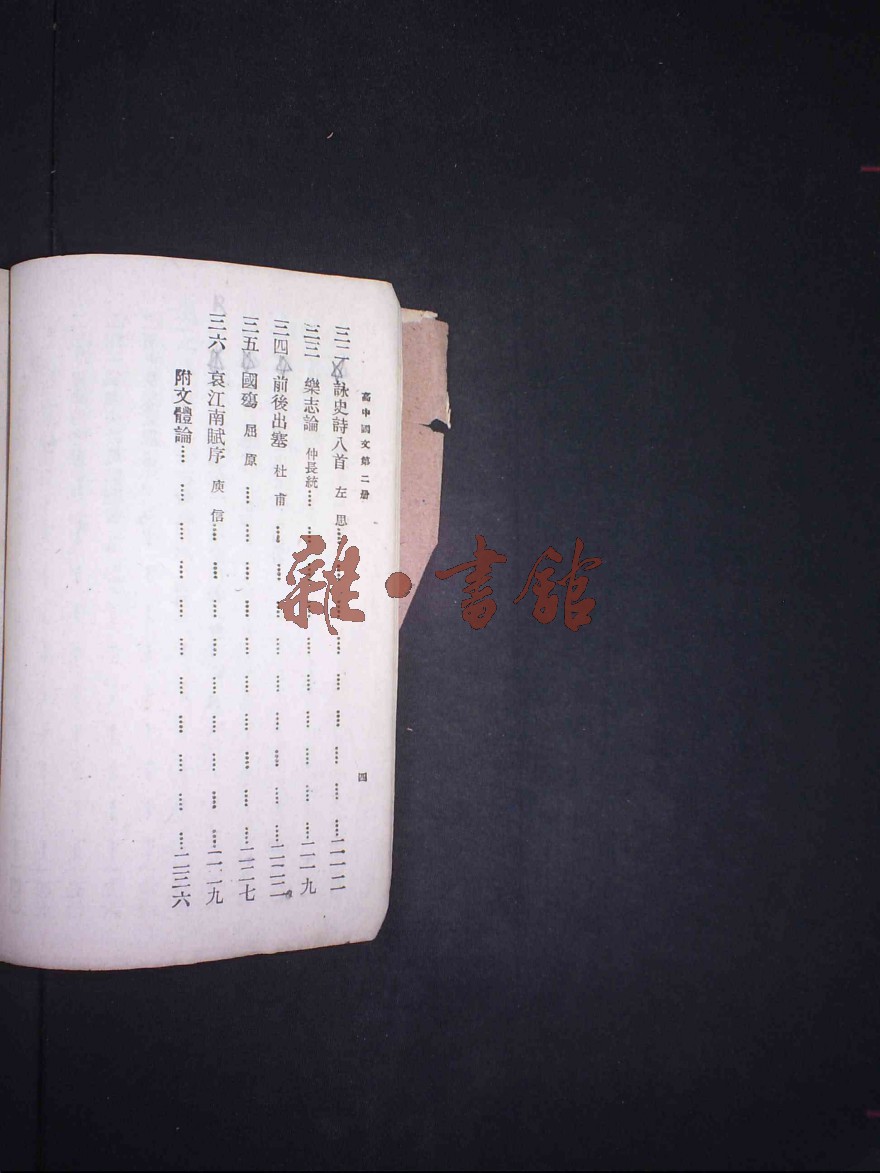 高中國文第二册
四
三二 詠史詩八首 左思……二一二
三三 樂志論 仲長統……二一九
三四 前後出塞 杜甫……二二二
三五 國殤 屈原……二二七
三六 哀江南賦序 庾信……二二九
附文體論……二三六
雜·書館